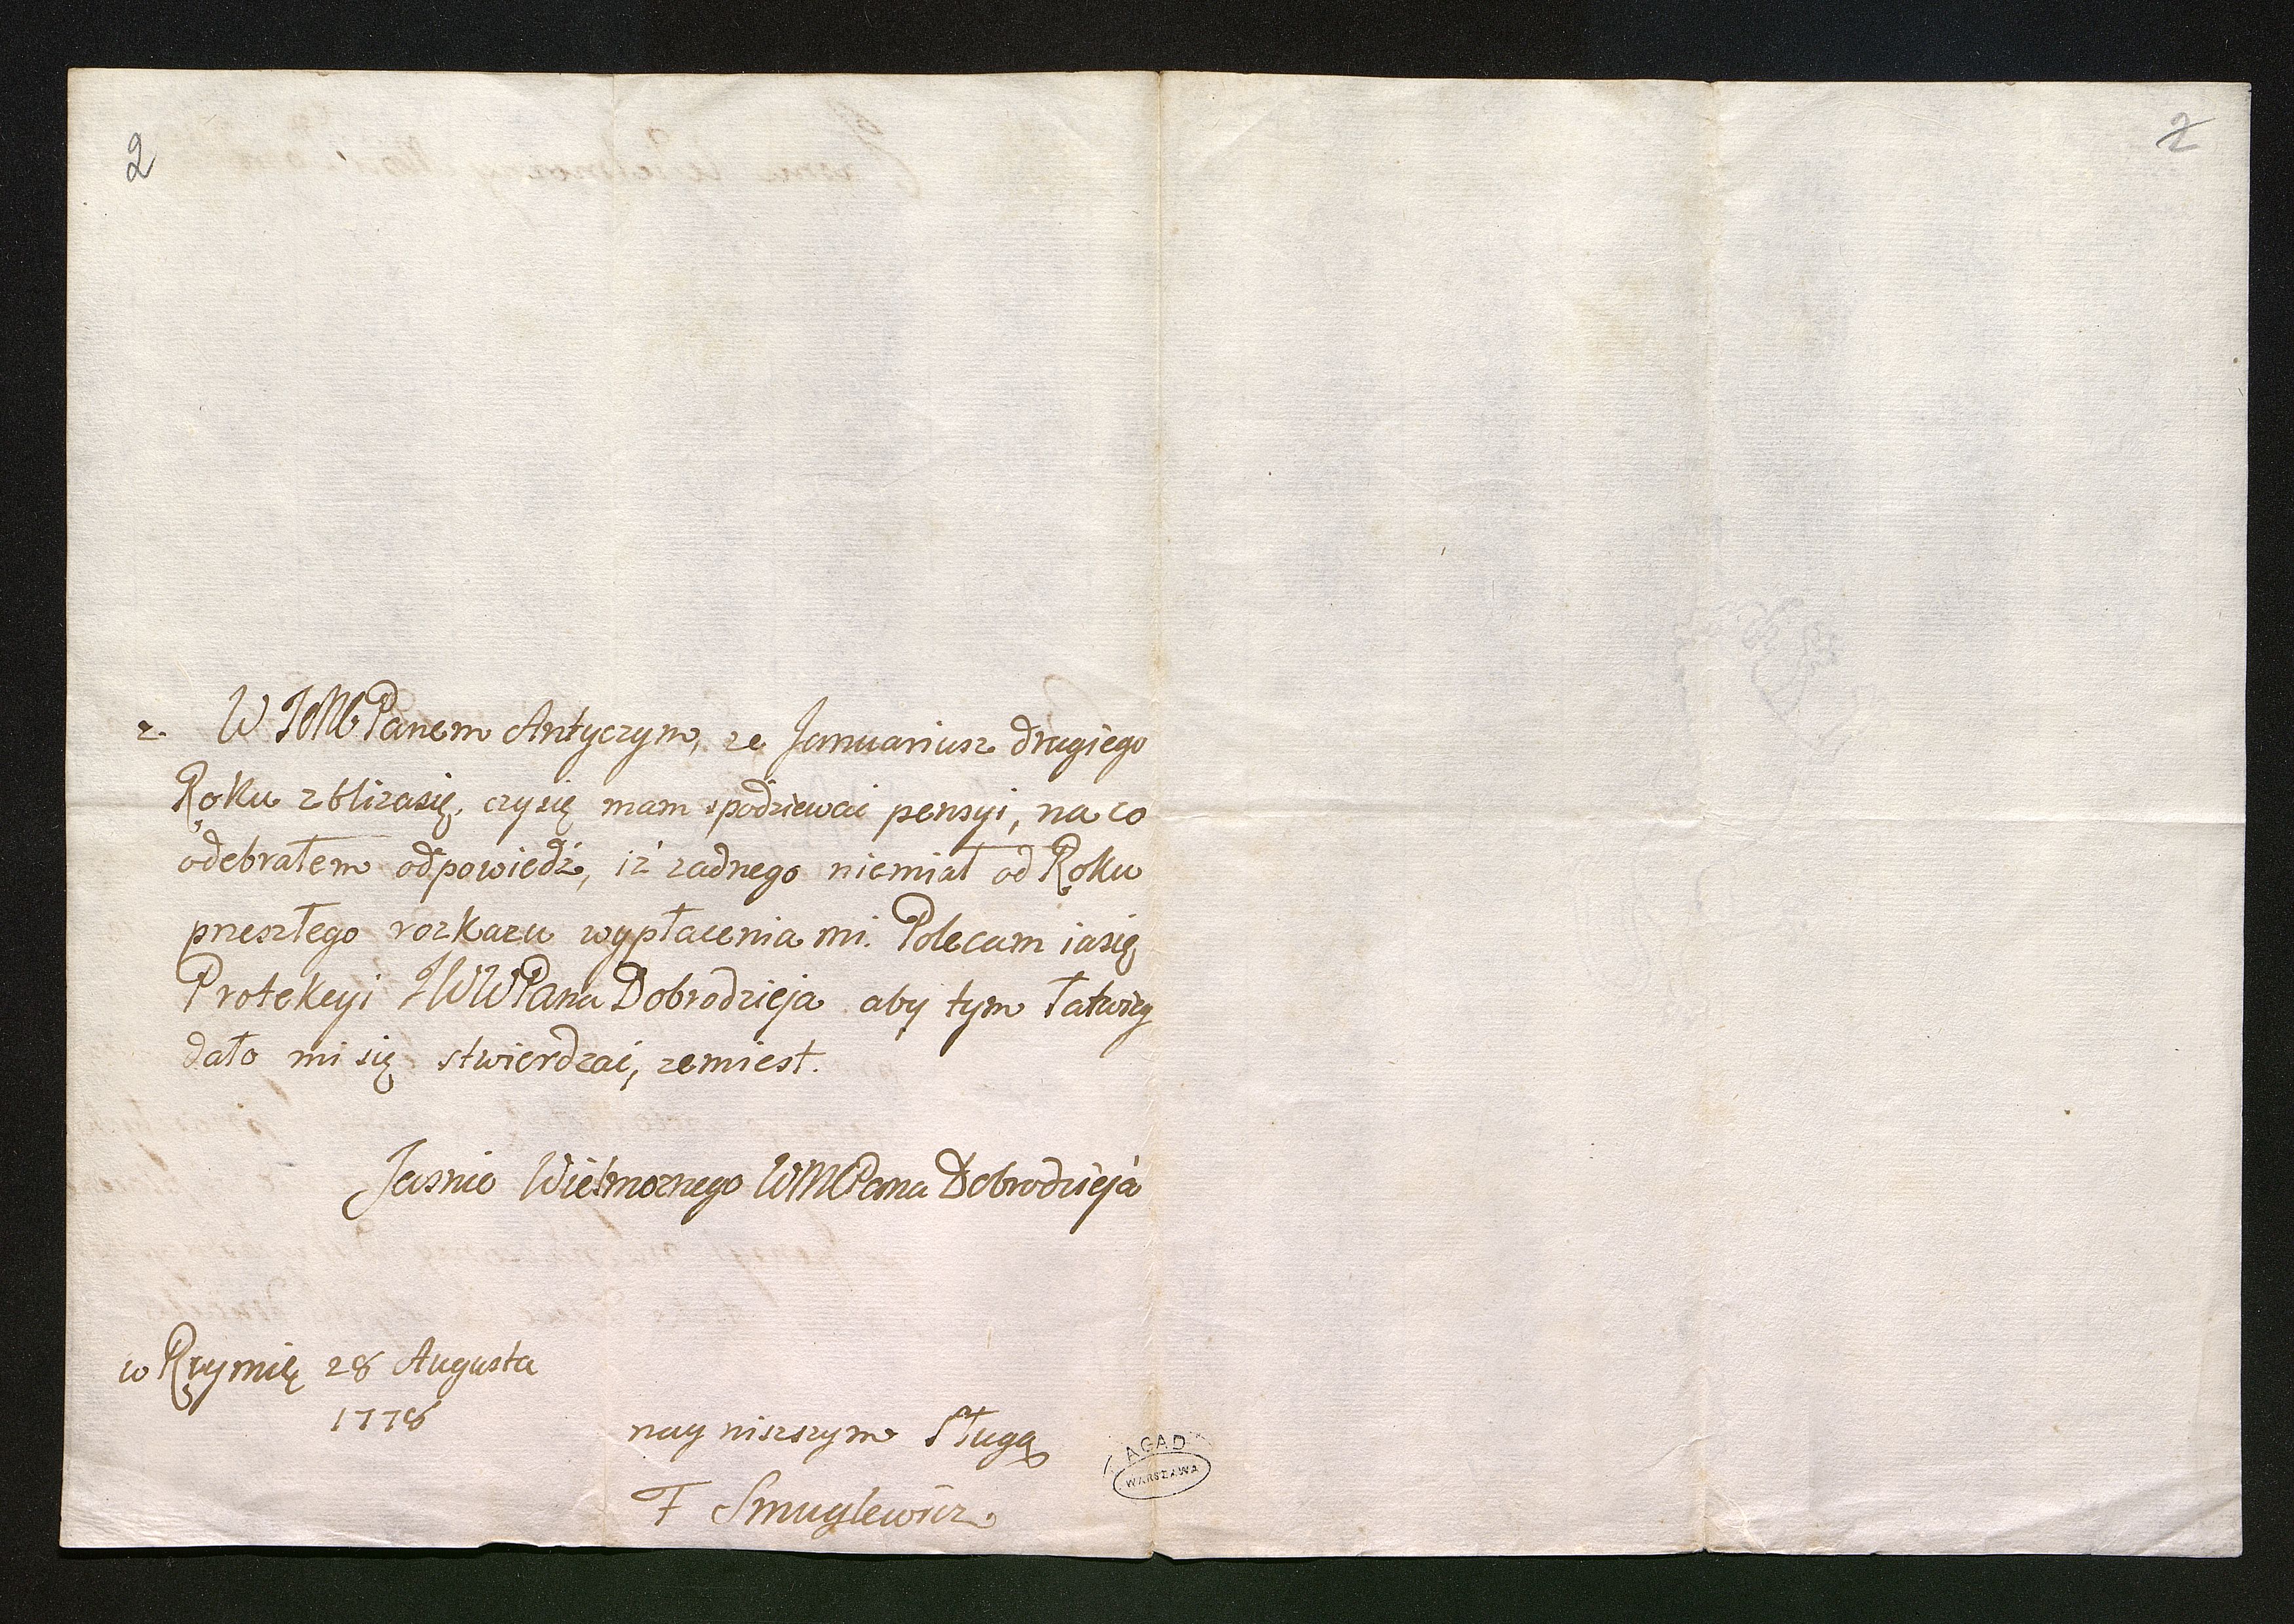 2
2
z. W JMC Panem Antyczym, ze Januariusz drugiego
Roku zbliza się, czy się mam spodziewać pensyi, na co
odebrałem odpowiedź, iż zadnego niemiał od Roku
przeszłego rozkazu wypłacenia mi. Polecam ia się
Protekcyi JWWPana Dobrodzieja aby tym łatwiey
dało mi się stwierdzać, zemiest.
Jasnie Wielmoznego WMCPana Dobrodzieja
w Rzymię 28 Augusta
1778
nay niszszym Sługą
F Smuglewicz.
AGAD
WARSZAWA